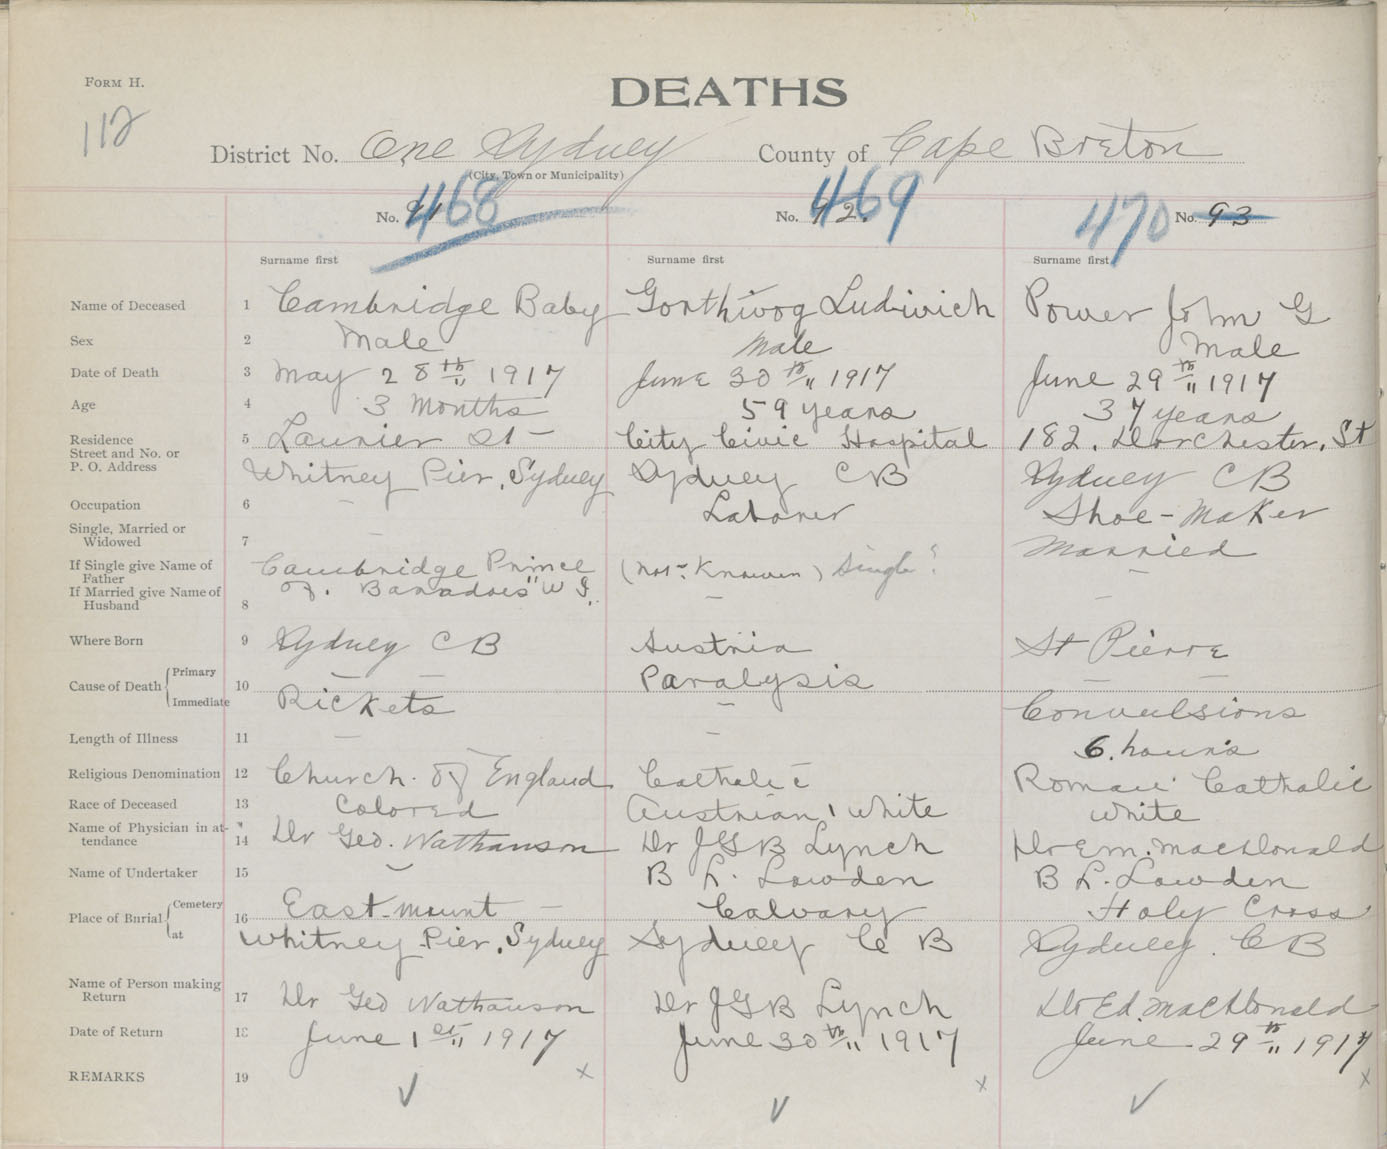 FORM H.
DEATHS
112
District No. One Sydney County of Cape Breton
(City, Town or Municipality)
No. 91 468
No. 92. 469
470 No. 93
Surname first Surname first Surname first
Name of Deceased 1 Cambridge Baby Gorthivog Ludivich Power John G
Sex 2 Male Male Male
Date of Death 3 May 28th " 1917 June 30th " 1917 June 29th " 1917
Age 4 3 Months 59 years 37 years
Residence 5 Laurier St - City Civic Hospital 182. Dorchester. St
Street and No. or
P. O. Address Whitney Pier, Sydney Sydney C B Sydney C B
Occupation 6 - Laborer Shoe-Maker
Single, Married or
Widowed 7 - Married
If Single give Name of
Father Cambridge Prince (Not Known) Single? -
If Married give Name of
Husband 8 of. Barados" W I. - -
Where Born 9 Sydney C B Austria St Pierre
Cause of Death Primary - - Paralysis - -
10
Immediate Rickets - Convulsions
Length of Illness 11 - - 6. hours
Religious Denomination 12 Church of England Catholic Roman Catholic
Race of Deceased 13 Colored Austrian, White White
Name of Physician in at-
tendance 14 Dr Geo. Nathanson Dr JGB Lynch Dr E M. MacDonald
Name of Undertaker 15 - B L. Lowden B L. Lowden
Place of Burial Cemetery 16 East-mount - Calvary Holy Cross
at Whitney Pier, Sydney Sydney C B Sydney. C B
Name of Person making
Return 17 Dr Geo Nathanson Dr JGB Lynch Dr Ed. MacDonald
Date of Return 18 June 1st " 1917 June 30th " 1917 June 29th " 1917
REMARKS 19 ✓ x ✓ x ✓ x